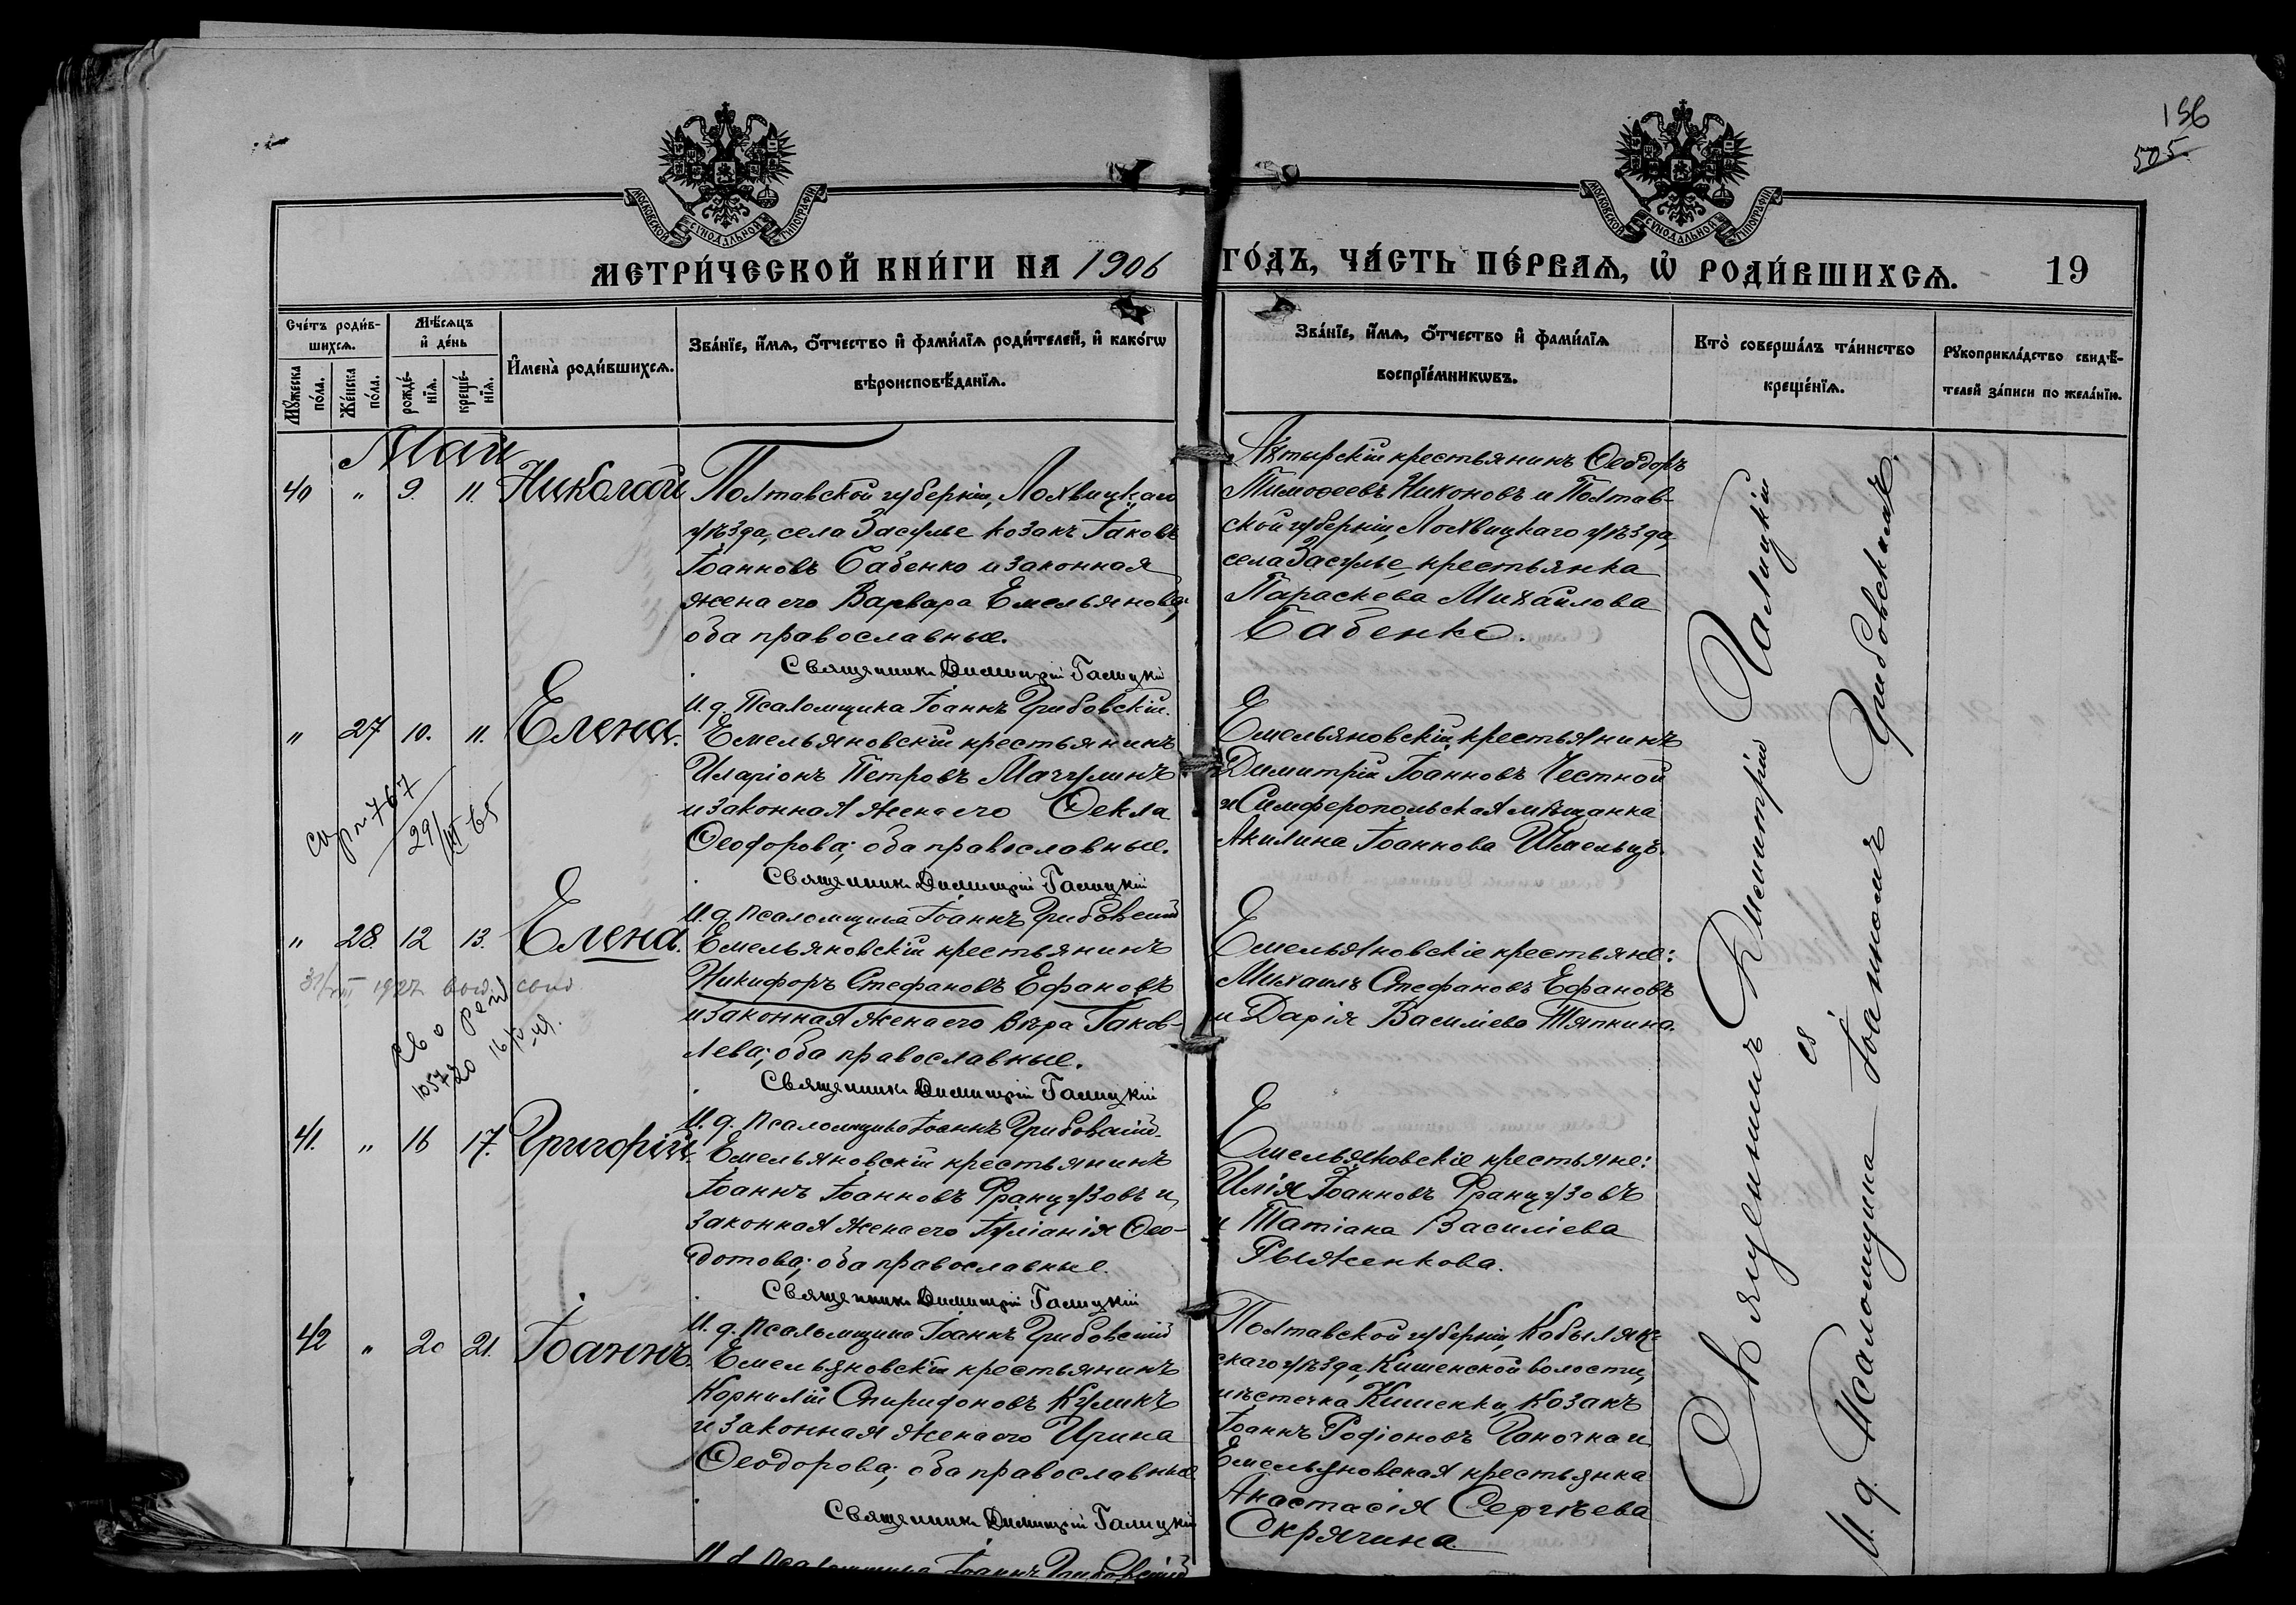 156
505
МОСКОВСКОЙ СѴНОДАЛЬНОЙ ТИПОГРАФІИ
МОСКОВСКОЙ СѴНОДАЛЬНОЙ ТИПОГРАФІИ
МЕТРИ́ЧЕСКОЙ КНИ́ГИ НА 1906 ГО́ДЪ, ЧА́СТЬ ПЕ́РВАѦ, Ѽ РОДИ́ВШИХСѦ. 19
Сче́тъ роди́в-
шихсѧ.
Мꙋ́жеска по́ла.
Же́нска по́ла.
Мѣ́сѧцъ
и҆ де́нь
рожде́-
нїѧ.
креще́-
нїѧ.
И҆мена̀ роди́вшихсѧ.
Зва́нїе, и҆́мѧ, ѻ҆́тчество и҆ фами́лїѧ роди́телей, и҆ како́гѡ
вѣроисповѣ́данїѧ.
Зва́нїе, и҆́мѧ, ѻ҆́тчество и҆ фами́лїѧ
воспрїе́мникѡвъ.
Кто̀ соверша́лъ та́инство
креще́нїѧ.
Рꙋкоприкла́дство свидѣ́-
телей за́писи по жела́нїю.
Май
40 " 9. 11. Николай
Полтавской губерніи, Лохвицкаго
уѣзда, села Засулье козакъ Іаковъ
Іоанновъ Бабенко и законная
жена его Варвара Емельянова;
оба православные.
Священникъ Димитрій Галицкій
И. д. Псаломщика Іоаннъ Грибовскій.
Ахтырскій крестьянинъ Ѳеодоръ
Тимоѳеевъ Никоновъ и Полтав-
ской губерніи, Лохвицкаго уѣзда,
села Засулье, крестьянка
Параскева Михайлова
Бабенко.
" 27 10. 11. Елена.
Емельяновскій крестьянинъ
Иларіонъ Петровъ Мачулинъ
и законная жена его Ѳекла
Ѳеодорова; оба православные.
Священникъ Димитрій Галицкій
И. д. псаломщика Іоаннъ Грибовскій
Емельяновскій крестьянинъ
Димитрій Іоанновъ Честной
и Симферопольская мѣщанка
Акилина Іоаннова Шмельцъ.
767
29/III-65
" 28. 12 13. Елена.
Емельяновскій крестьянинъ
Никифоръ Стефановъ Ефановъ
и законная жена его Вѣра Іаков-
лева; оба православные.
Священникъ Димитрій Галицкій
И. д. псаломщика Іоаннъ Грибовскій.
Емельяновскіе крестьяне:
Михаилъ Стефановъ Ефановъ
и Дарія Василіева Тяпкина.
1927
41. " 16 17. Григорій.
Емельяновскій крестьянинъ
Іоаннъ Іоанновъ Французовъ и
законная жена его Іуліанія Ѳео-
дотова; оба православные.
Священникъ Димитрій Галицкій
И. д. псаломщика Іоаннъ Грибовскій
Емельяновскіе крестьяне:
Илія Іоанновъ Французовъ
и Татіана Василіева
Рыженкова.
42 " 20 21. Іоаннъ.
Емельяновскій крестьянинъ
Корнилій Спиридоновъ Куликъ
и законная жена его Ирина
Ѳеодорова; оба православные.
Священникъ Димитрій Галицкій
И. д. псаломщика Іоаннъ Грибовскій
Полтавской губерніи, Кабыляк-
скаго уѣзда, Кишенской волости,
мѣстечка Кишенки, козакъ
Іоаннъ Родіоновъ Ганочка и
Емельяновская крестьянка
Анастасія Сергѣева
Скрягина
Священникъ Димитрій Галицкій
съ
И. д. Псаломщика Іоанномъ Грибовскимъ.